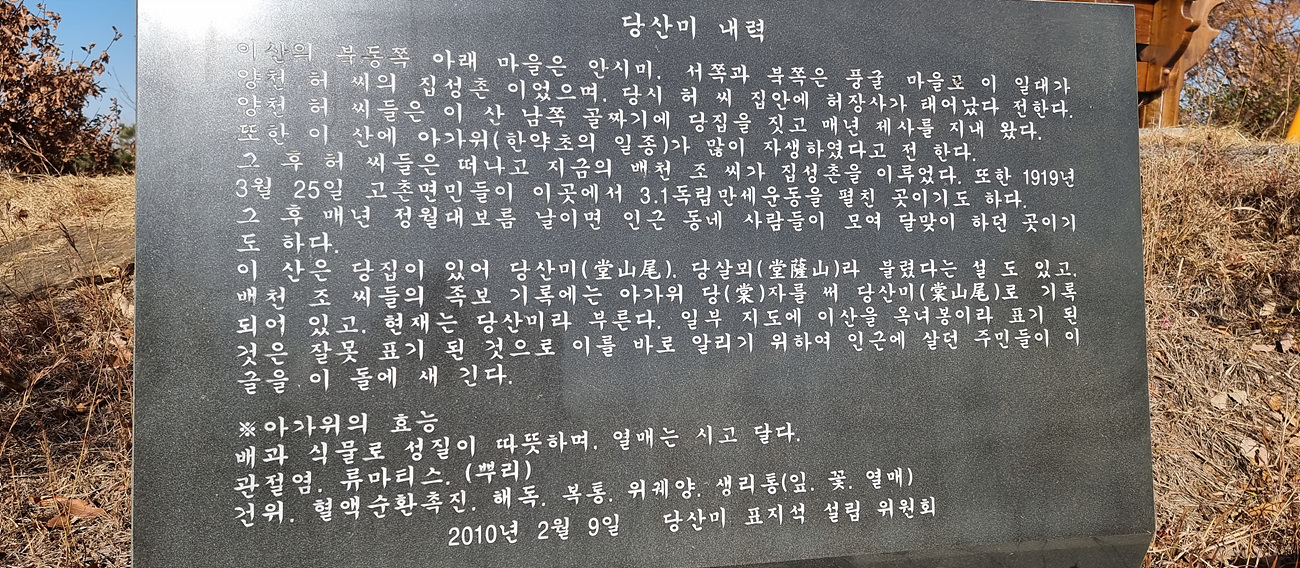 당산미 내력
이산의 북동쪽 아래 마을은 안시미, 서쪽과 북쪽은 풍굴 마을로 이 일대가
양천 허 씨의 집성촌 이었으며, 당시 허 씨 집안에 허장사가 태어났다 전한다.
양천 허 씨들은 이 산 남쪽 골짜기에 당집을 짓고 매년 제사를 지내 왔다.
또한 이 산에 아가위(한약초의 일종)가 많이 자생하였다고 전 한다.
그 후 허 씨들은 떠나고 지금의 배천 조 씨가 집성촌을 이루었다. 또한 1919년
3월 25일 고촌면민들이 이곳에서 3.1독립만세운동을 펼친 곳이기도 하다.
그 후 매년 정월대보름 날이면 인근 동네 사람들이 모여 달맞이 하던 곳이기
도 하다.
이 산은 당집이 있어 당산미(堂山尾), 당살뫼(堂薩山)라 불렸다는 설 도 있고,
배천 조 씨들의 족보 기록에는 아가위 당(棠)자를 써 당산미(棠山尾)로 기록
되어 있고, 현재는 당산미라 부른다. 일부 지도에 이산을 옥녀봉이라 표기 된
것은 잘못 표기 된 것으로 이를 바로 알리기 위하여 인근에 살던 주민들이 이
글을 이 돌에 새 긴다.
※아가위의 효능
배과 식물로 성질이 따뜻하며, 열매는 시고 달다.
관절염, 류마티스, (뿌리)
건위, 혈액순환촉진, 해독, 복통, 위궤양, 생리통(잎, 꽃, 열매)
2010년 2월 9일 당산미 표지석 설립 위원회